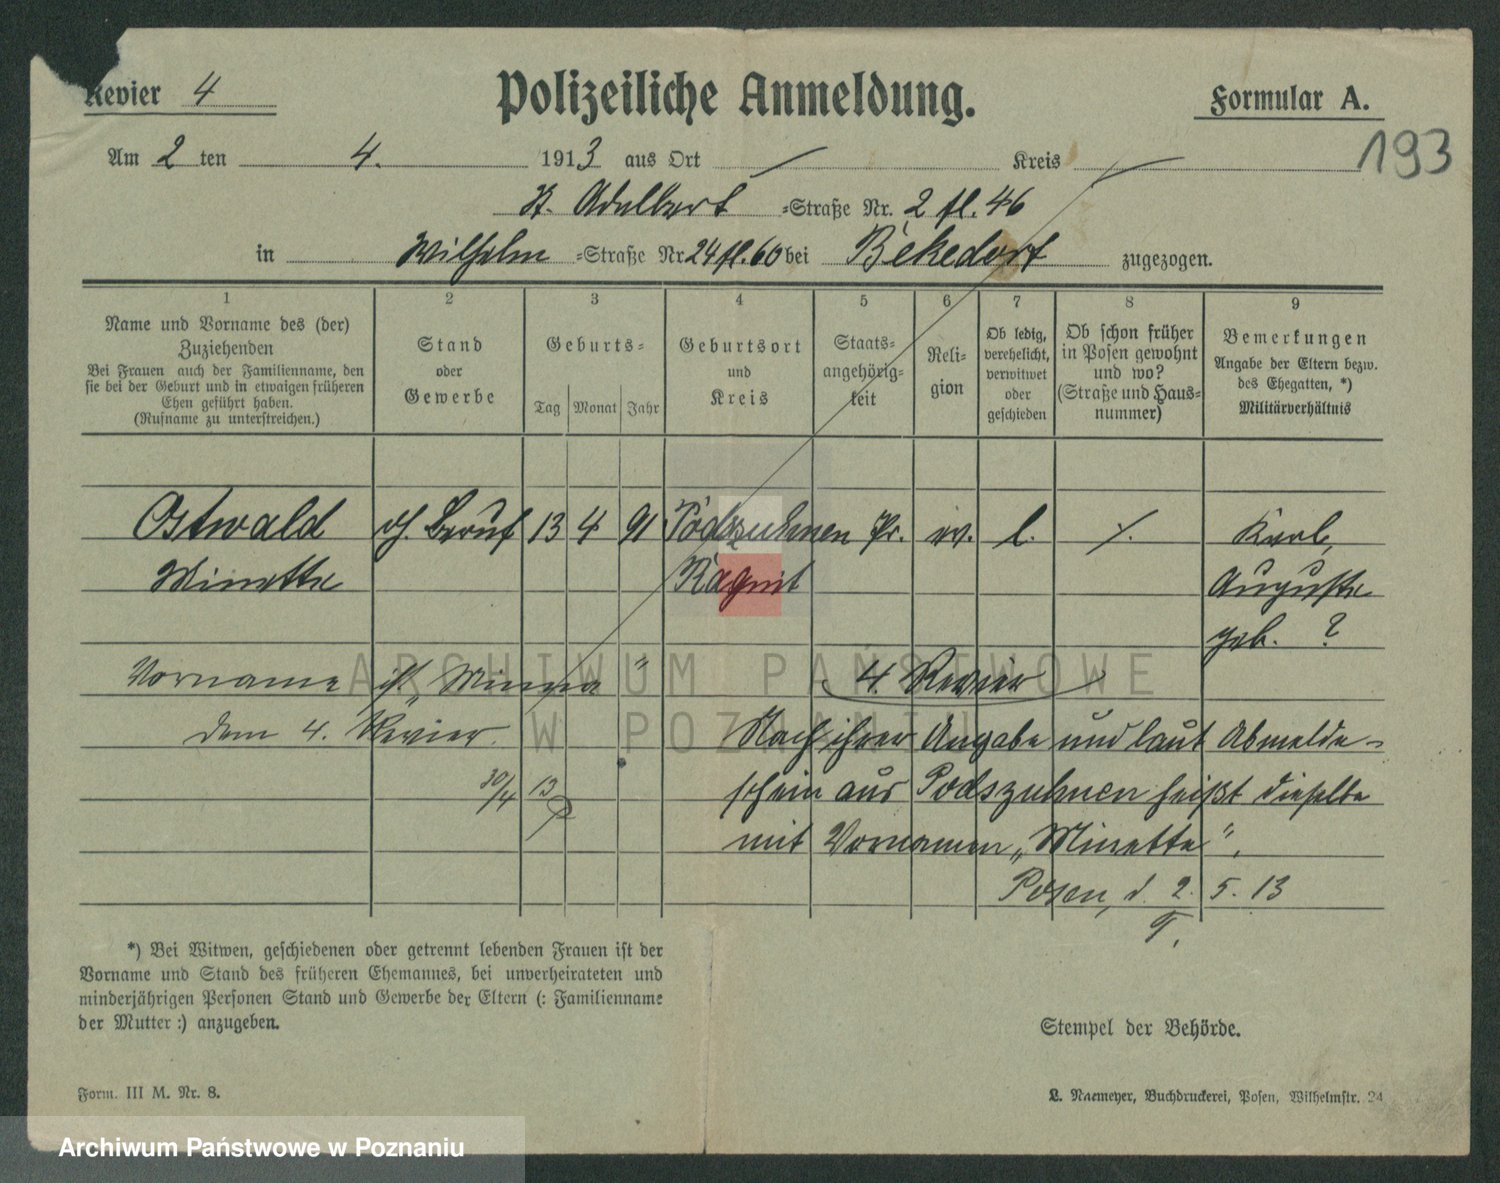 Revier 4
Polizeiliche Anmeldung.
Formular A.
193
Am 2 ten 4. 1913 aus Ort — Kreis —
St. Adalbert =Straße Nr. 2 fl. 46
in Wilhelm =Straße Nr 24 fl. 60 bei Bekedorf zugezogen.
1 2 3 4 5 6 7 8 9
Name und Vorname des (der)
Zuziehenden
Bei Frauen auch der Familienname, den
sie bei der Geburt und in etwaigen früheren
Ehen geführt haben.
(Rufname zu unterstreichen.)
Stand
oder
Gewerbe
Geburts=
Tag Monat Jahr
Geburtsort
und
Kreis
Staats=
angehörig=
keit
Reli=
gion
Ob ledig,
verehelicht,
verwitwet
oder
geschieden
Ob schon früher
in Posen gewohnt
und wo?
(Straße und Haus=
nummer)
Bemerkungen
Angabe der Eltern bezw.
des Ehegatten, *)
Militärverhältnis
Ostwald oh. Beruf 13 4 91 Podszuhnen Pr. ev. l. ./. Karl,
Minette Ragnit Auguste
geb. ?
Vorname ist „Minna“ 4. Revier
dem 4. Revier. Nach ihrer Angabe und laut Abmelde=
30/4 13 schein aus Podszuhnen heißt dieselbe
mit Vornamen „Minette“.
Posen, d. 2. 5. 13
*) Bei Witwen, geschiedenen oder getrennt lebenden Frauen ist der
Vorname und Stand des früheren Ehemannes, bei unverheirateten und
minderjährigen Personen Stand und Gewerbe der Eltern (: Familienname
der Mutter :) anzugeben.
Stempel der Behörde.
Form. III M. Nr. 8.
L. Naemeyer, Buchdruckerei, Posen, Wilhelmstr. 24
ARCHIWUM PAŃSTWOWE
W POZNANIU
Archiwum Państwowe w Poznaniu